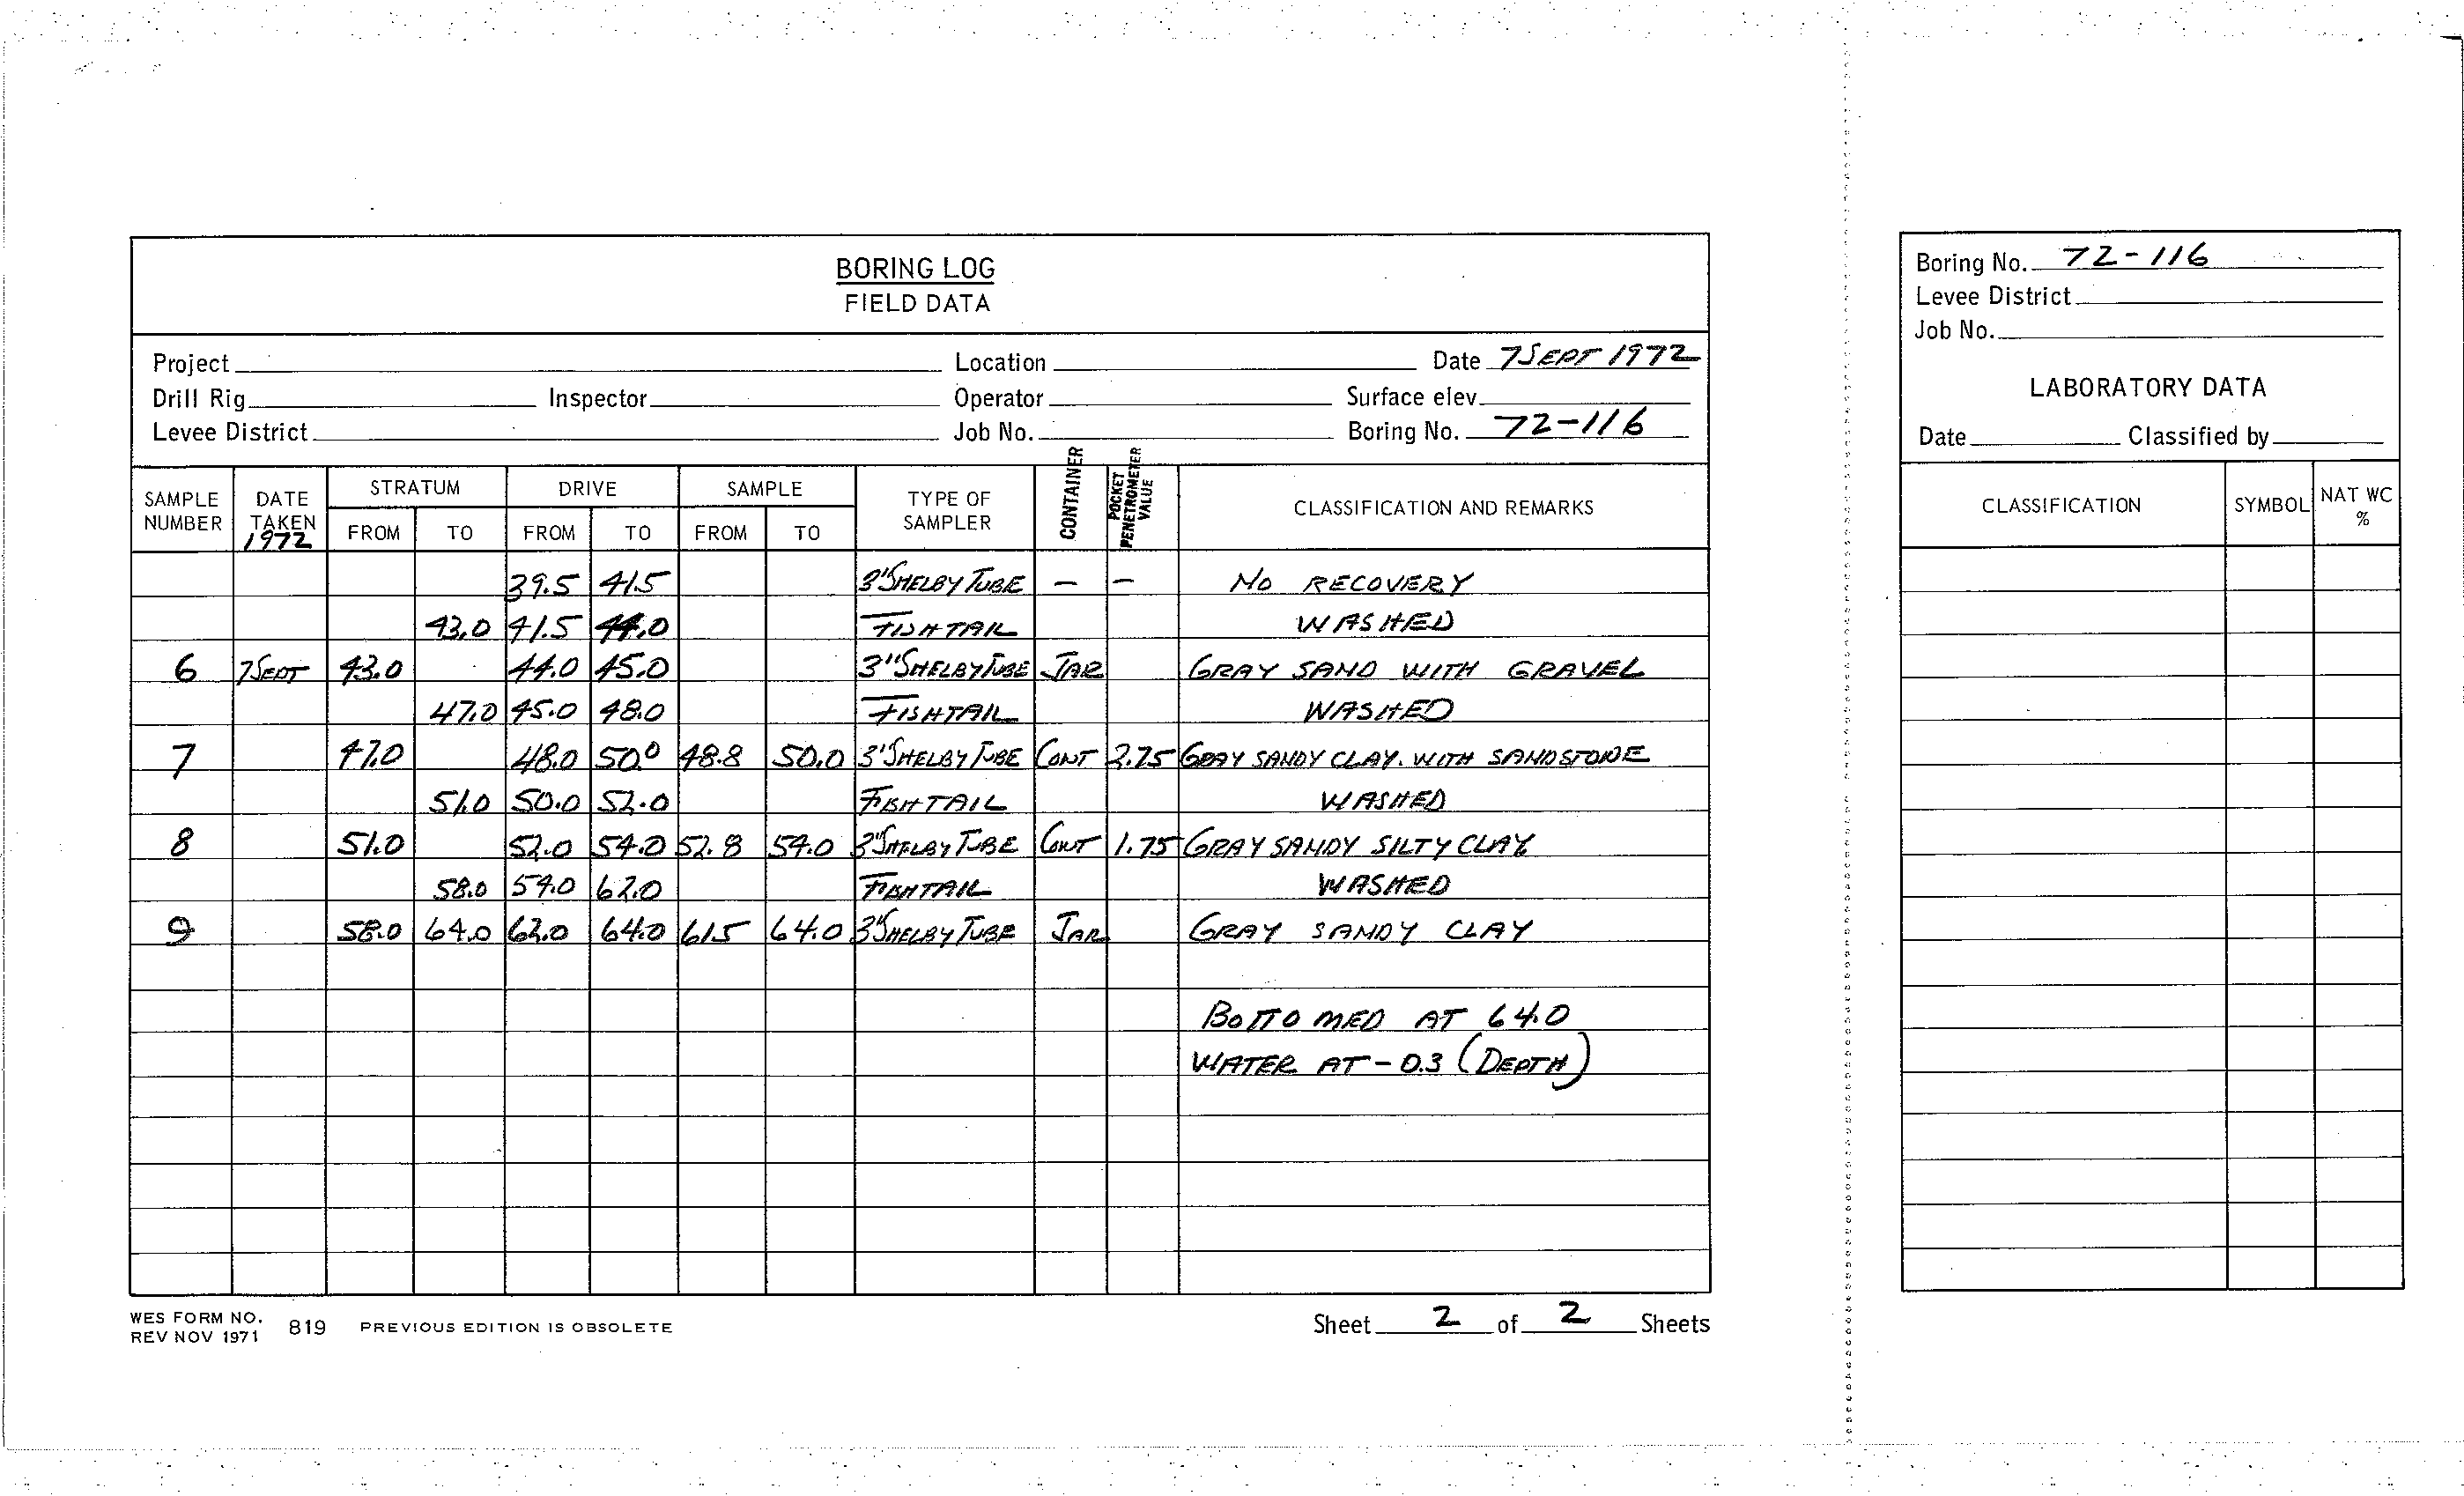 BORING LOG
FIELD DATA
Project Location Date 7 SEPT 1972
Drill Rig Inspector Operator Surface elev.
Levee District Job No. Boring No. 72-116
SAMPLE NUMBER DATE TAKEN 1972 STRATUM FROM TO DRIVE FROM TO SAMPLE FROM TO TYPE OF SAMPLER CONTAINER POCKET PENETROMETER VALUE CLASSIFICATION AND REMARKS
39.5 41.5 3" SHELBY TUBE - - NO RECOVERY
43.0 41.5 44.0 FISHTAIL WASHED
6 7 SEPT 43.0 44.0 45.0 3" SHELBY TUBE JAR GRAY SAND WITH GRAVEL
47.0 45.0 48.0 FISHTAIL WASHED
7 47.0 48.0 50.0 48.8 50.0 3" SHELBY TUBE CONT 2.75 GRAY SANDY CLAY. WITH SANDSTONE
51.0 50.0 52.0 FISHTAIL WASHED
8 51.0 52.0 54.0 52.8 54.0 3" SHELBY TUBE CONT 1.75 GRAY SANDY SILTY CLAY
58.0 54.0 62.0 FISHTAIL WASHED
9 58.0 64.0 62.0 64.0 61.5 64.0 3" SHELBY TUBE JAR GRAY SANDY CLAY
BOTTOMED AT 64.0
WATER AT - 0.3 (DEPTH)
WES FORM NO. 819 PREVIOUS EDITION IS OBSOLETE
REV NOV 1971
Sheet 2 of 2 Sheets
Boring No. 72-116
Levee District
Job No.
LABORATORY DATA
Date Classified by
CLASSIFICATION SYMBOL NAT WC %